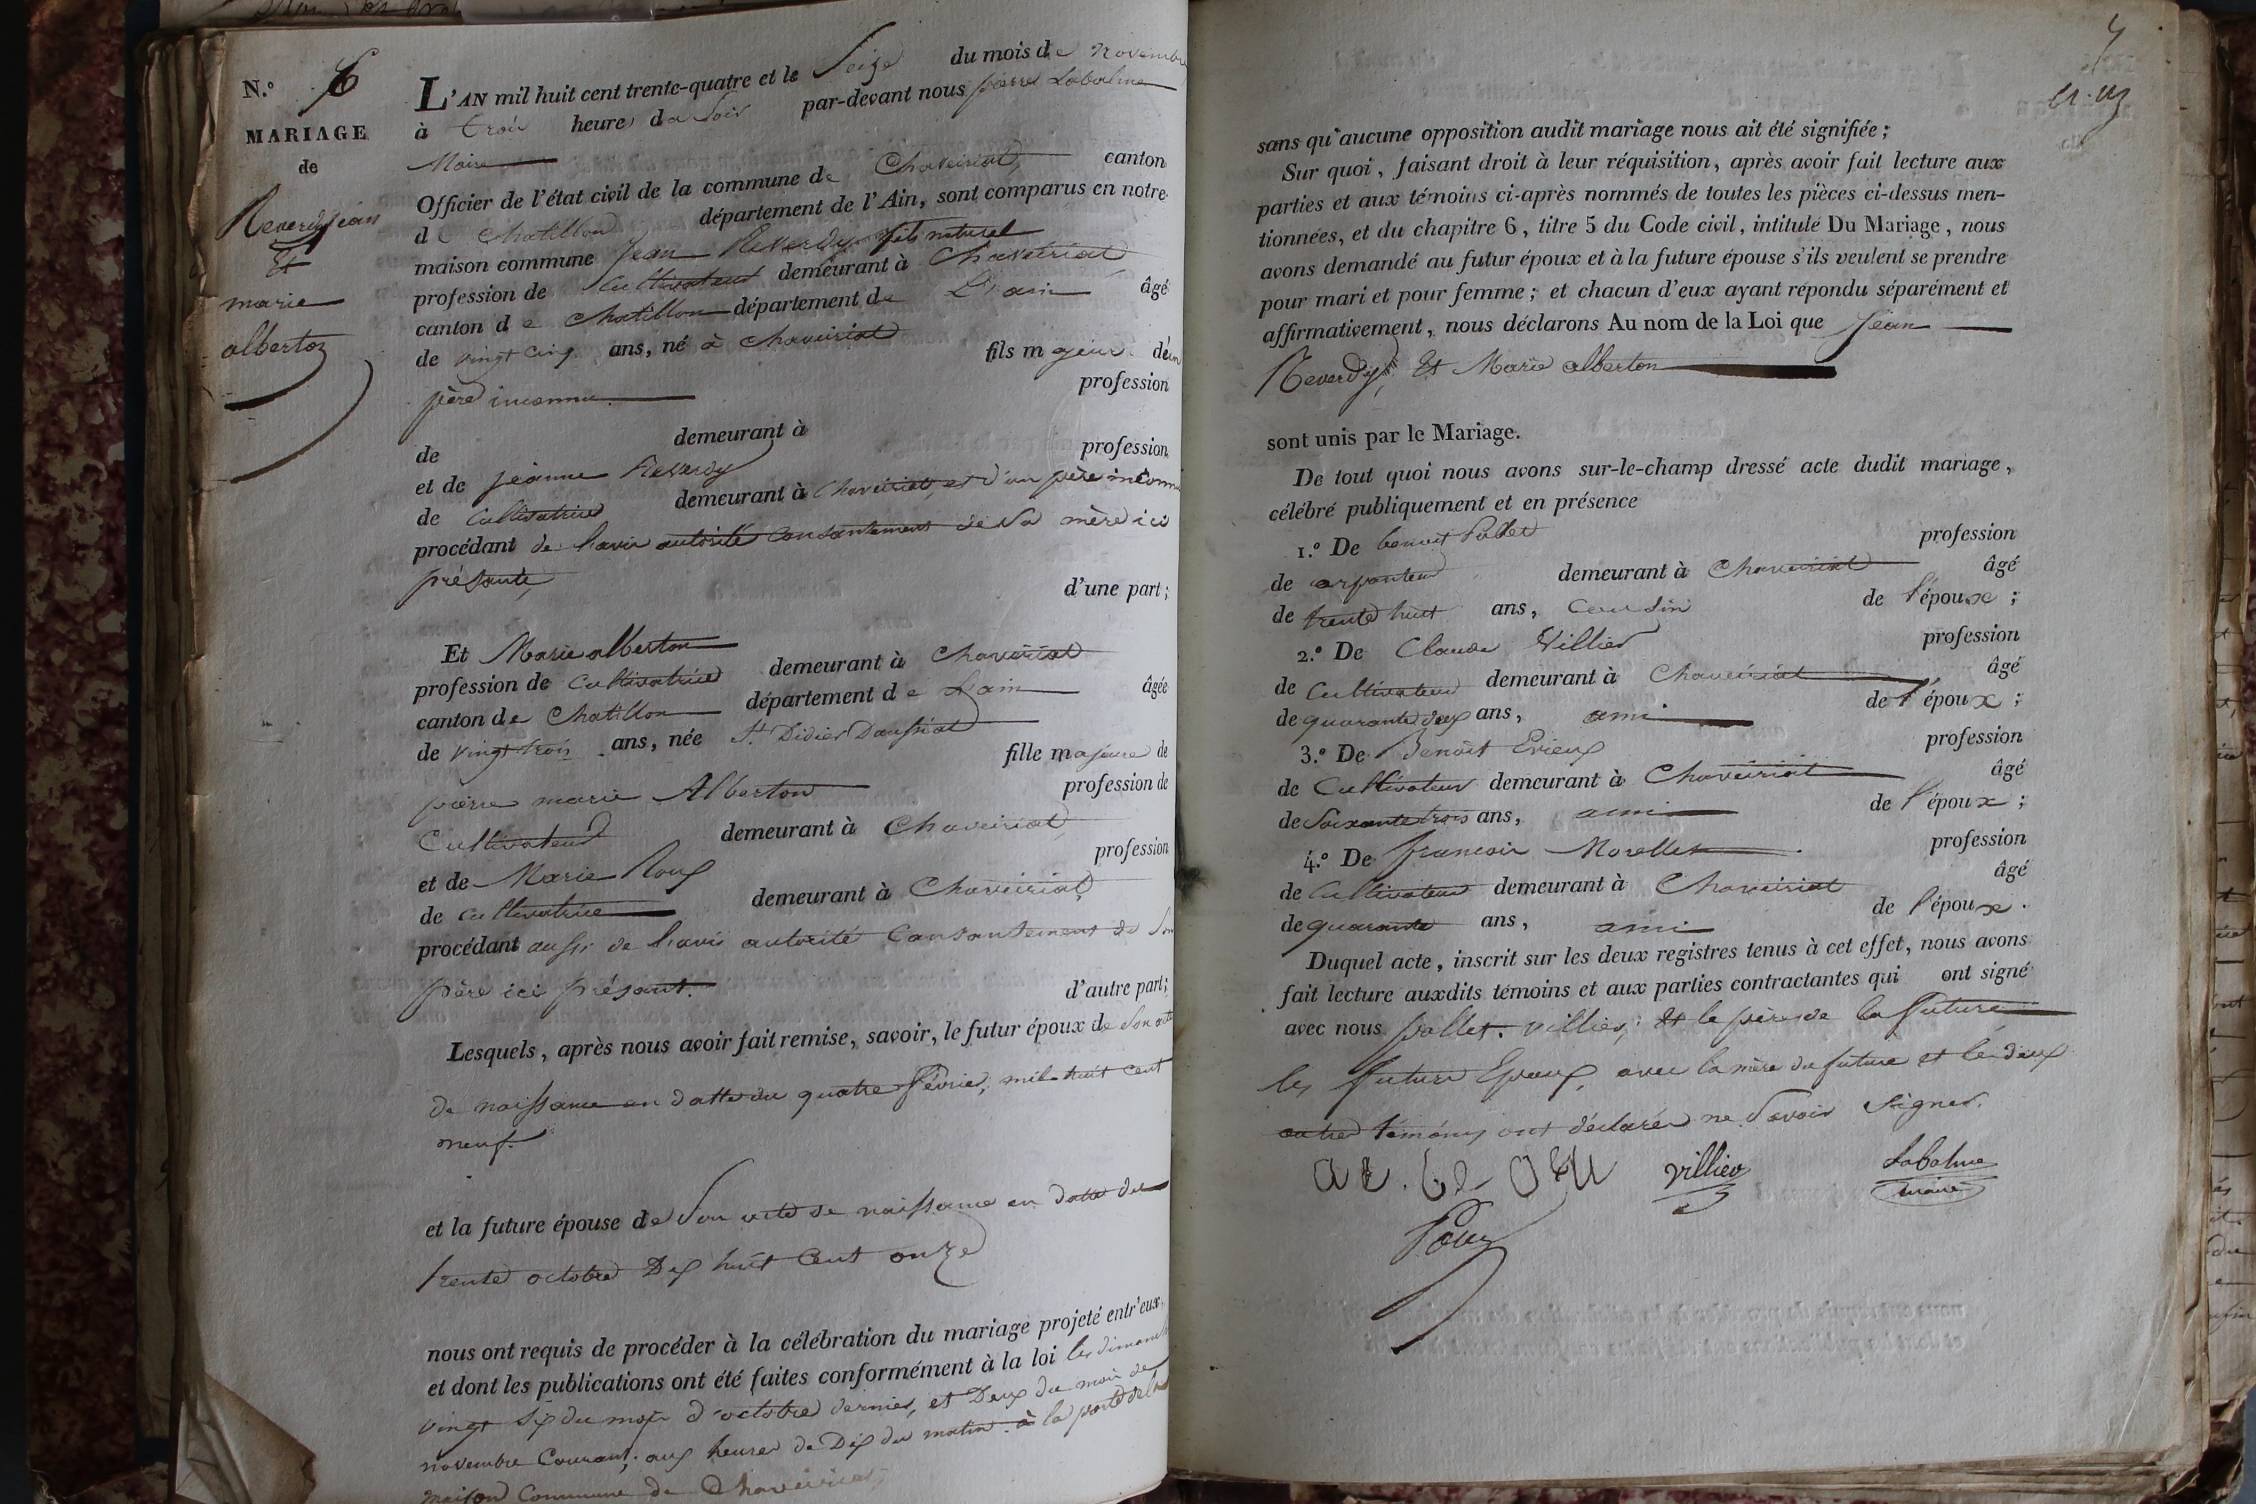 N.º 6
MARIAGE
de
Reverdy jean
Et
marie
alberton
L'AN mil huit cent trente-quatre et le Seize du mois de novembre
à trois heures du Soir par-devant nous pierre Labalme
Maire
Officier de l'état civil de la commune de Chaveiriat, canton
de Chatillon département de l'Ain, sont comparus en notre
maison commune Jean Reverdy fils naturel
profession de Cultivateur demeurant à Chaveiriat
canton de Chatillon département de L'ain âgé
de vingt cinq ans, né à Chaveiriat fils majeur d'un
père inconnu. profession
de demeurant à
et de jeanne Reverdy profession
de Cultivatrice demeurant à Chaveiriat, et d'un père inconnu
procédant de l'avis autorité consantement de Sa mère ici
présante, d'une part;
Et Marie alberton
profession de Cultivatrice demeurant à Chaveiriat
canton de Chatillon département de L'ain âgée
de vingt trois ans, née St Didier Daussiat
fille majeure de
pierre marie Alberton profession de
Cultivateur demeurant à Chaveiriat,
et de Marie Roux profession
de cultivatrice demeurant à Chaveiriat,
procédant aussi de l'avis autorité Consantement de Son
père ici présant. d'autre part;
Lesquels, après nous avoir fait remise, savoir, le futur époux de Son acte
de naissance en datte du quatre février, mil huit cent
neuf.
et la future épouse de Son acte de naissance en datte du
trente octobre Dix huit Cent onze
nous ont requis de procéder à la célébration du mariage projeté entr'eux,
et dont les publications ont été faites conformément à la loi les dimanches
vingt Six du mois d'octobre dernier, et Deux du mois de
novembre Courant, aux heures de Dix du matin à la porte de la
maison Commune de Chaveiriat,
7
sans qu'aucune opposition audit mariage nous ait été signifiée;
Sur quoi, faisant droit à leur réquisition, après avoir fait lecture aux
parties et aux témoins ci-après nommés de toutes les pièces ci-dessus men-
tionnées, et du chapitre 6, titre 5 du Code civil, intitulé Du Mariage, nous
avons demandé au futur époux et à la future épouse s'ils veulent se prendre
pour mari et pour femme; et chacun d'eux ayant répondu séparément et
affirmativement, nous déclarons Au nom de la Loi que Jean
Reverdy, Et Marie alberton
sont unis par le Mariage.
De tout quoi nous avons sur-le-champ dressé acte dudit mariage,
célébré publiquement et en présence
1.º De benoit Pollet profession
de arpenteur demeurant à Chaveiriat âgé
de trente huit ans, Cousin de l'époux;
2.º De Claude Villier profession
de Cultivateur demeurant à Chaveiriat âgé
de quarante deux ans, ami de l'époux;
3.º De Benoit Erieux profession
de Cultivateur demeurant à Chaveiriat âgé
de Soixante trois ans, ami de l'époux;
4.º De francois Morellet profession
de Cultivateur demeurant à Chaveiriat âgé
de quarante ans, ami de l'époux.
Duquel acte, inscrit sur les deux registres tenus à cet effet, nous avons
fait lecture auxdits témoins et aux parties contractantes qui ont signé
avec nous pollet. villier, Et le père de la future
les futurs Epoux, avec la mère du future et les deux
autres témoins ont déclarés ne Savoir Signer.
villier
Labalme
maire